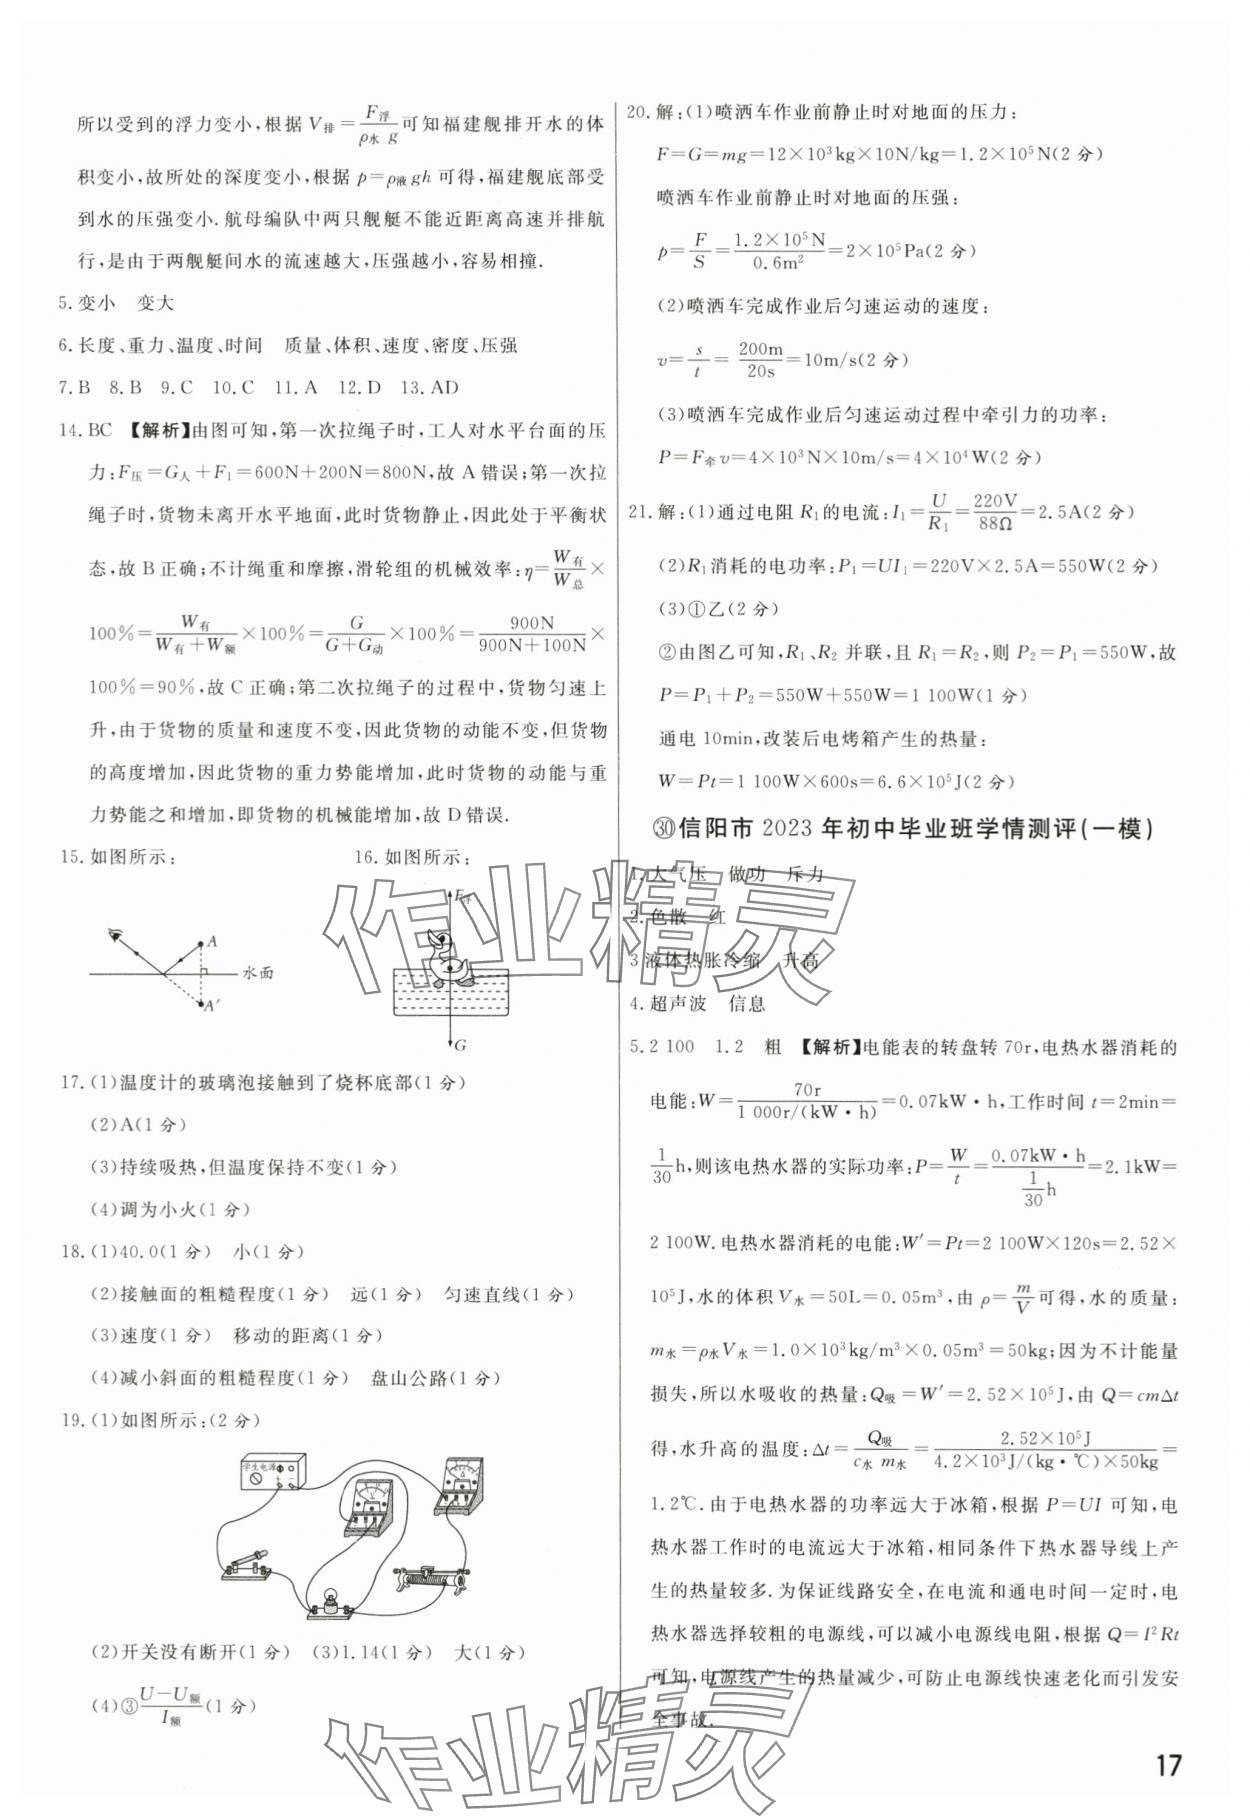 所以受到的浮力变小,根据 V排=F浮/(ρ水 g)可知福建舰排开水的体
积变小,故所处的深度变小,根据 p=ρ液gh 可得,福建舰底部受
到水的压强变小.航母编队中两只舰艇不能近距离高速并排航
行,是由于两舰艇间水的流速越大,压强越小,容易相撞.
5.变小 变大
6.长度、重力、温度、时间 质量、体积、速度、密度、压强
7.B 8.B 9.C 10.C 11.A 12.D 13.AD
14.BC 【解析】由图可知,第一次拉绳子时,工人对水平台面的压
力:F压=G人+F₁=600N+200N=800N,故 A 错误;第一次拉
绳子时,货物未离开水平地面,此时货物静止,因此处于平衡状
态,故 B 正确;不计绳重和摩擦,滑轮组的机械效率:η=W有/W总×
100%=W有/(W有+W额)×100%=G/(G+G动)×100%=900N/(900N+100N)×
100%=90%,故 C 正确;第二次拉绳子的过程中,货物匀速上
升,由于货物的质量和速度不变,因此货物的动能不变,但货物
的高度增加,因此货物的重力势能增加,此时货物的动能与重
力势能之和增加,即货物的机械能增加,故 D 错误.
15.如图所示: 16.如图所示:
A
水面
A′
F浮
G
17.(1)温度计的玻璃泡接触到了烧杯底部(1 分)
(2)A(1 分)
(3)持续吸热,但温度保持不变(1 分)
(4)调为小火(1 分)
18.(1)40.0(1 分) 小(1 分)
(2)接触面的粗糙程度(1 分) 远(1 分) 匀速直线(1 分)
(3)速度(1 分) 移动的距离(1 分)
(4)减小斜面的粗糙程度(1 分) 盘山公路(1 分)
19.(1)如图所示:(2 分)
学生电源
V
A
(2)开关没有断开(1 分) (3)1.14(1 分) 大(1 分)
(4)③(U−U额)/I额(1 分)
20.解:(1)喷洒车作业前静止时对地面的压力:
F=G=mg=12×10³kg×10N/kg=1.2×10⁵N(2 分)
喷洒车作业前静止时对地面的压强:
p=F/S=1.2×10⁵N/0.6m²=2×10⁵Pa(2 分)
(2)喷洒车完成作业后匀速运动的速度:
v=s/t=200m/20s=10m/s(2 分)
(3)喷洒车完成作业后匀速运动过程中牵引力的功率:
P=F牵v=4×10³N×10m/s=4×10⁴W(2 分)
21.解:(1)通过电阻 R₁的电流:I₁=U/R₁=220V/88Ω=2.5A(2 分)
(2)R₁消耗的电功率:P₁=UI₁=220V×2.5A=550W(2 分)
(3)①乙(2 分)
②由图乙可知,R₁、R₂ 并联,且 R₁=R₂,则 P₂=P₁=550W,故
P=P₁+P₂=550W+550W=1 100W(1 分)
通电 10min,改装后电烤箱产生的热量:
W=Pt=1 100W×600s=6.6×10⁵J(2 分)
㉚信阳市 2023 年初中毕业班学情测评(一模)
1.大气压 做功 斥力
2.色散 红
3.液体热胀冷缩 升高
4.超声波 信息
5.2 100 1.2 粗 【解析】电能表的转盘转 70r,电热水器消耗的
电能:W=70r/(1 000r/(kW·h))=0.07kW·h,工作时间 t=2min=
1/30 h,则该电热水器的实际功率:P=W/t=0.07kW·h/(1/30 h)=2.1kW=
2 100W.电热水器消耗的电能:W′=Pt=2 100W×120s=2.52×
10⁵J,水的体积 V水=50L=0.05m³,由 ρ=m/V可得,水的质量:
m水=ρ水V水=1.0×10³kg/m³×0.05m³=50kg;因为不计能量
损失,所以水吸收的热量:Q吸=W′=2.52×10⁵J,由 Q=cmΔt
得,水升高的温度:Δt=Q吸/(c水 m水)=2.52×10⁵J/(4.2×10³J/(kg·℃)×50kg)=
1.2℃.由于电热水器的功率远大于冰箱,根据 P=UI 可知,电
热水器工作时的电流远大于冰箱,相同条件下热水器导线上产
生的热量较多.为保证线路安全,在电流和通电时间一定时,电
热水器选择较粗的电源线,可以减小电源线电阻,根据 Q=I²Rt
可知,电源线产生的热量减少,可防止电源线快速老化而引发安
全事故.
作业精灵
作业精灵
17